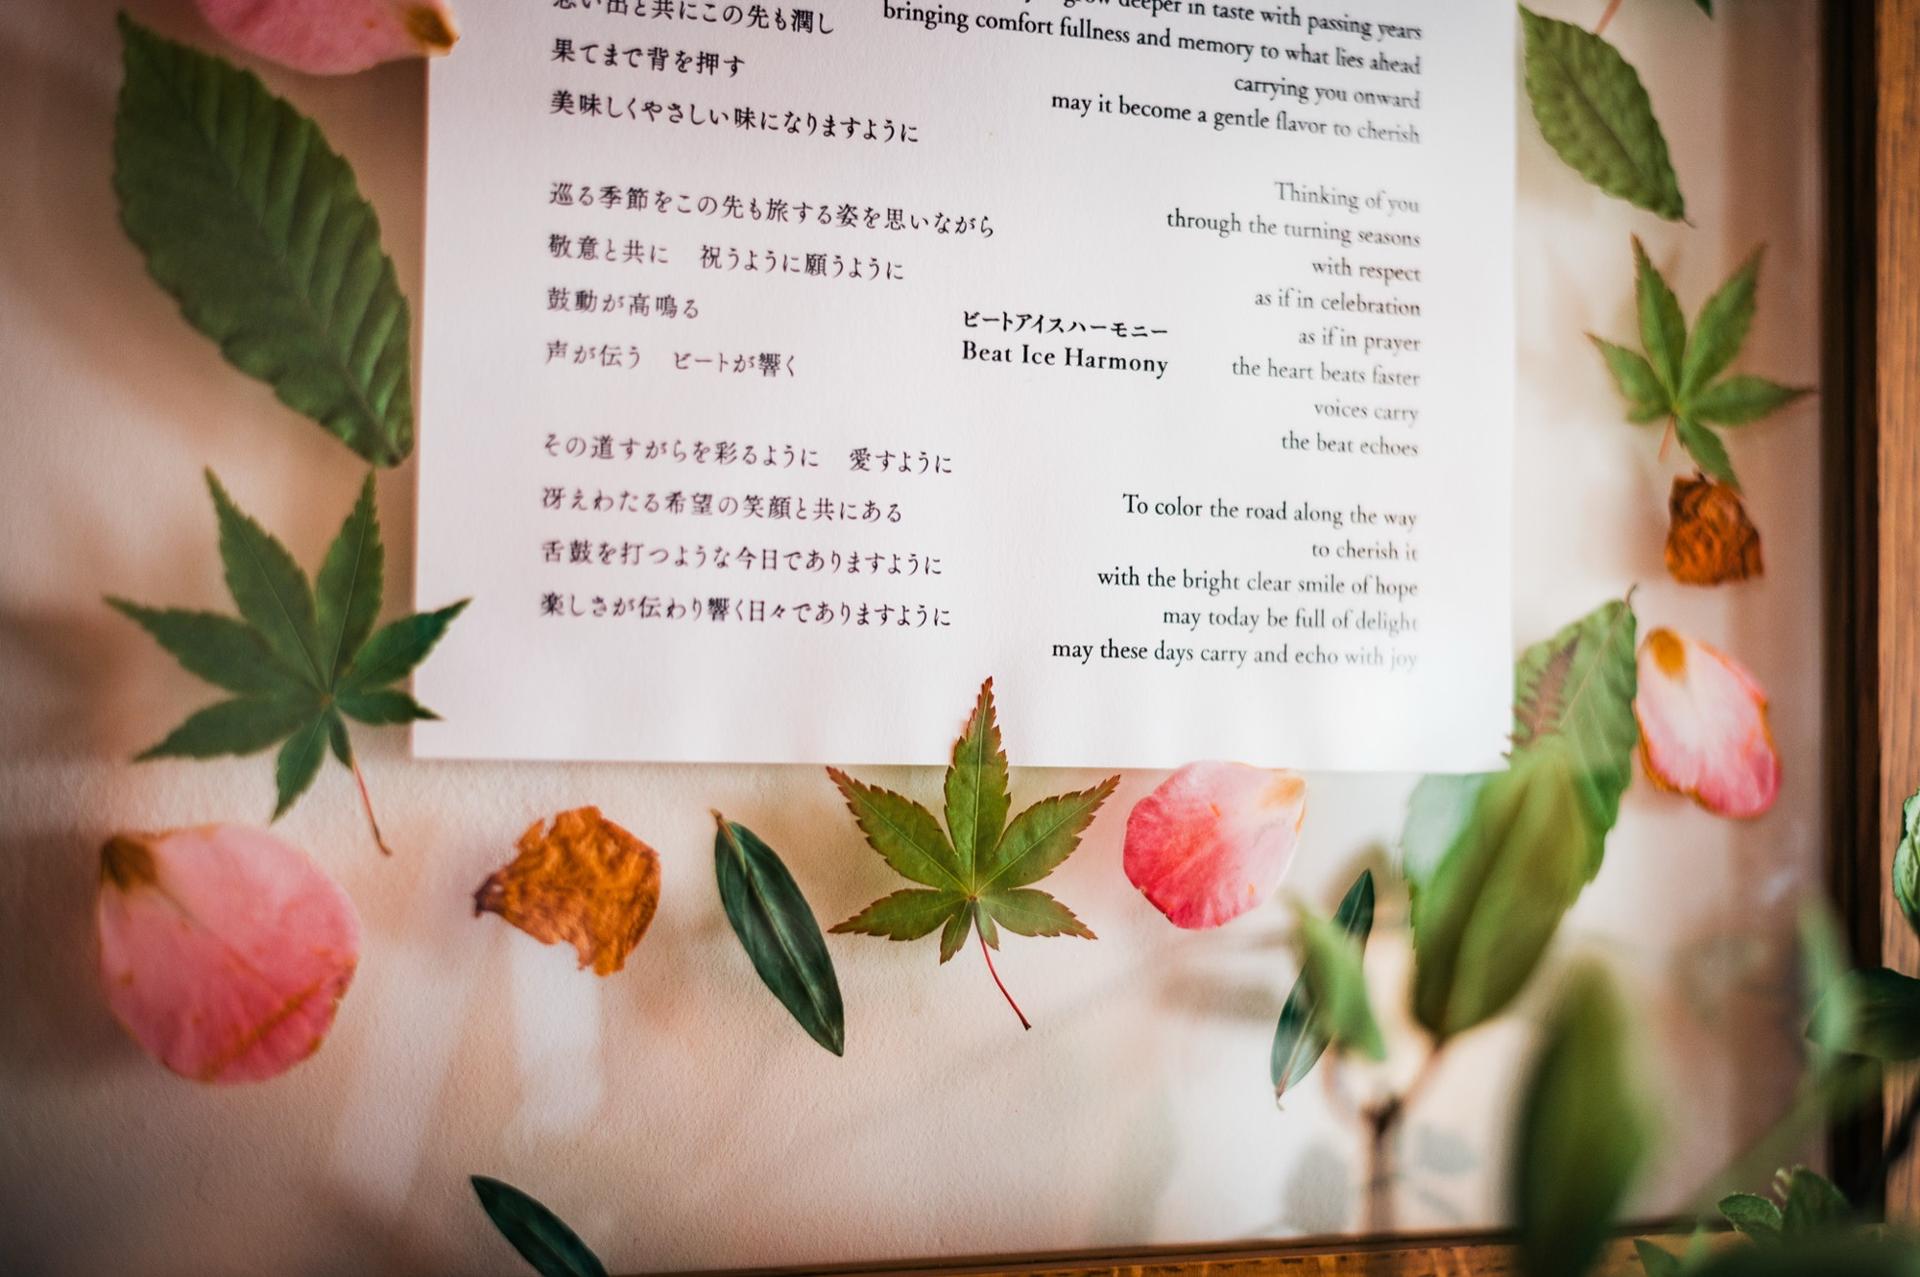 思い出と共にこの先も潤し
果てまで背を押す
美味しくやさしい味になりますように
巡る季節をこの先も旅する姿を思いながら
敬意と共に　祝うように願うように
鼓動が高鳴る
声が伝う　ビートが響く
その道すがらを彩るように　愛すように
冴えわたる希望の笑顔と共にある
舌鼓を打つような今日でありますように
楽しさが伝わり響く日々でありますように
ビートアイスハーモニー
Beat Ice Harmony
grow deeper in taste with passing years
bringing comfort fullness and memory to what lies ahead
carrying you onward
may it become a gentle flavor to cherish
Thinking of you
through the turning seasons
with respect
as if in celebration
as if in prayer
the heart beats faster
voices carry
the beat echoes
To color the road along the way
to cherish it
with the bright clear smile of hope
may today be full of delight
may these days carry and echo with joy